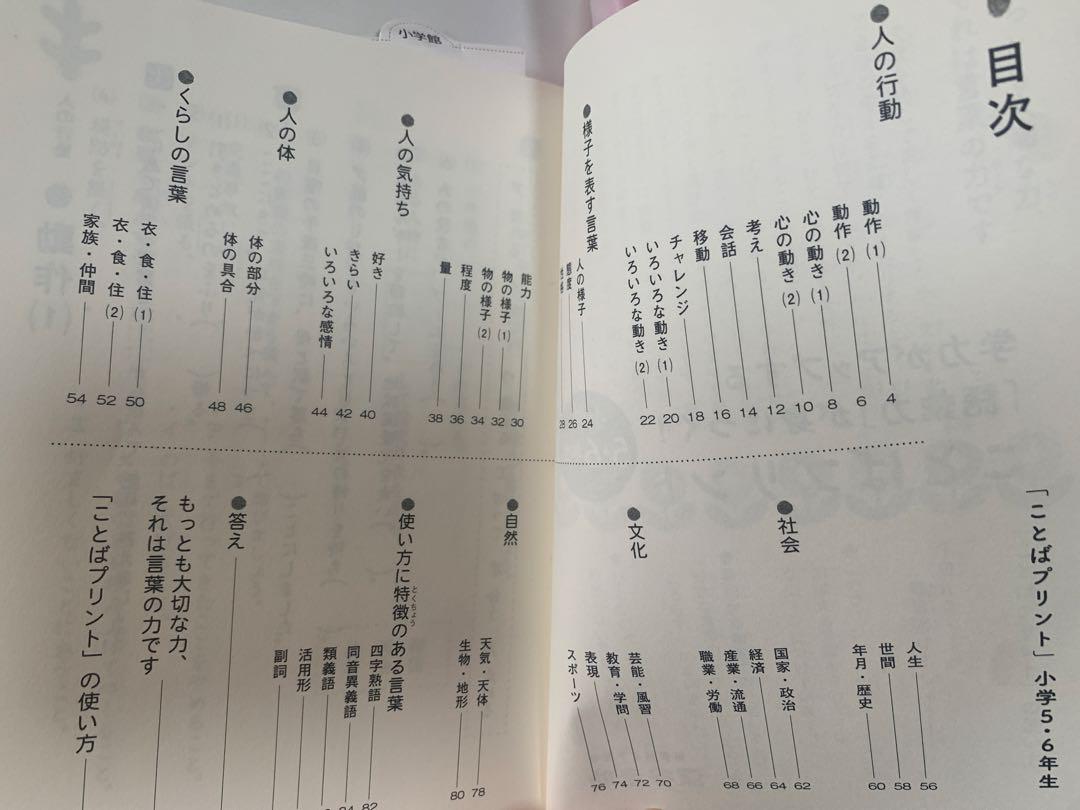 小学館
目次
「ことばプリント」小学5・6年生
●人の行動
動作(1) 4
動作(2) 6
心の動き(1) 8
心の動き(2) 10
考え 12
会話 14
移動 16
チャレンジ 18
いろいろな動き(1) 20
いろいろな動き(2) 22
●様子を表す言葉
人の様子 24
態度 26
28
能力 30
物の様子(1) 32
物の様子(2) 34
程度 36
量 38
●人の気持ち
好き 40
きらい 42
いろいろな感情 44
●人の体
体の部分 46
体の具合 48
●くらしの言葉
衣・食・住(1) 50
衣・食・住(2) 52
家族・仲間 54
●社会
人生 56
世間 58
年月・歴史 60
国家・政治 62
経済 64
産業・流通 66
職業・労働 68
●文化
芸能・風習 70
教育・学問 72
表現 74
スポーツ 76
●自然
天気・天体 78
生物・地形 80
●使い方に特徴のある言葉
とくちょう
四字熟語 82
同音異義語 84
類義語
活用形
副詞
●答え
もっとも大切な力、
それは言葉の力です
「ことばプリント」の使い方